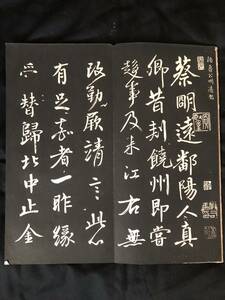 顏魯公明遠帖
蔡明遠鄱陽人真
卿昔刺饒州即嘗
趍事及来江右無
改勤厥靖言此心
有足嘉者一昨緣
受替歸北中止金